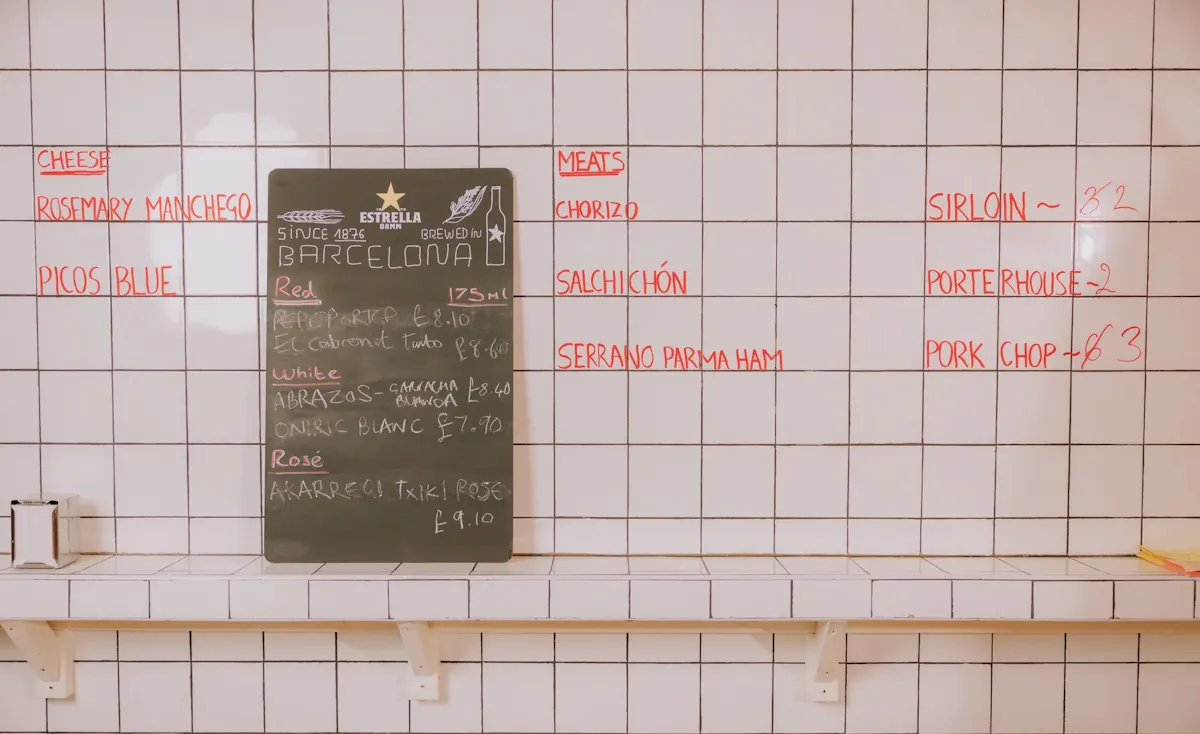 CHEESE
ROSEMARY MANCHEGO
PICOS BLUE
ESTRELLA
DAMM
SINCE 1876 BREWED IN
BARCELONA
Red 175ml
£8.10
EL Cabrenet Tinto £8.60
White
ABRAZOS - GARNACHA BLANCA £8.40
ONIRIC BLANC £7.90
Rosé
AKARREGI TXIKI ROSE
£9.10
MEATS
CHORIZO
SALCHICHÓN
SERRANO PARMA HAM
SIRLOIN ~ 2
PORTERHOUSE ~ 2
PORK CHOP ~ 3